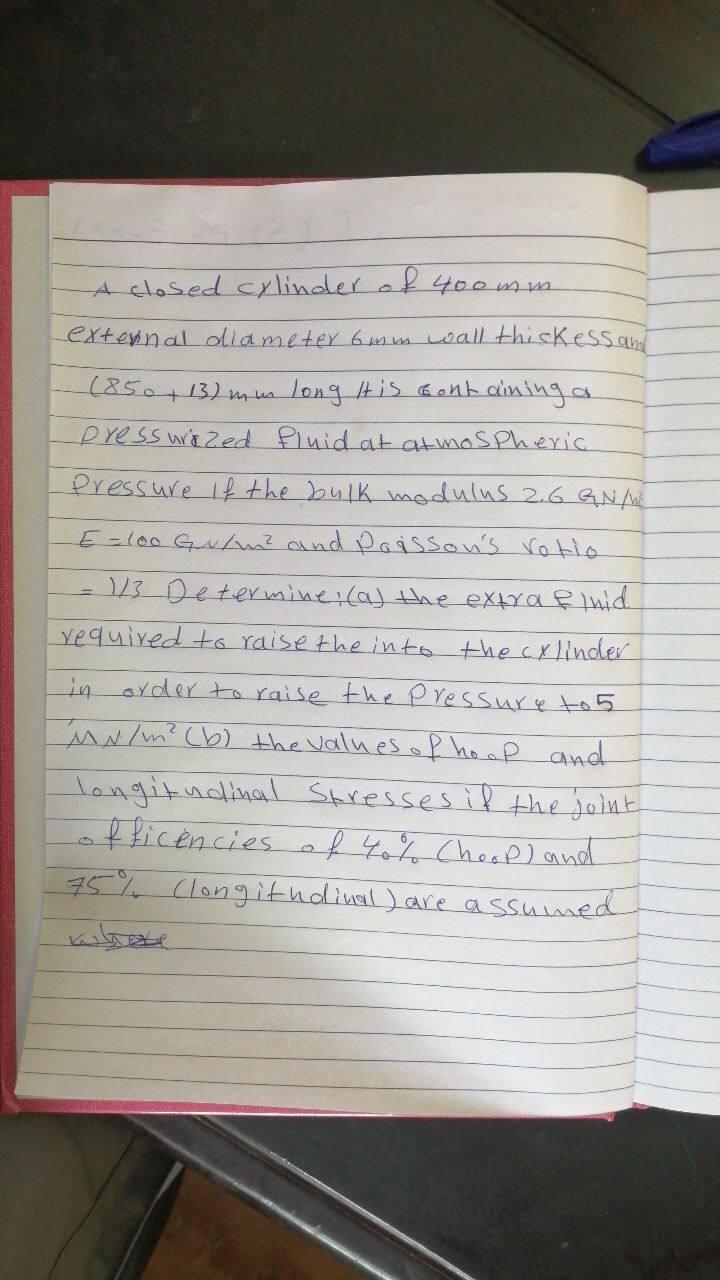 A closed cylinder of 400mm
external diameter 6mm wall thickess and
(850+13)mm long it is containing a
pressurized fluid at atmospheric
pressure if the bulk modulus 2.6 GN/m²
E=100 GN/m² and Poisson's ratio
= 1/3 Determine:(a) the extra fluid
required to raise the into the cylinder
in order to raise the pressure to 5
MN/m² (b) the values of hoop and
longitudinal stresses if the joint
efficencies of 40% (hoop) and
75% (longitudinal) are assumed